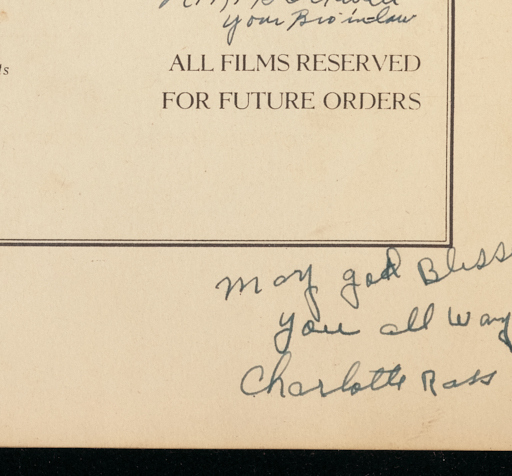 your Bro inlaw
ls
ALL FILMS RESERVED
FOR FUTURE ORDERS
May god Bless
you all way
Charlotte Rass